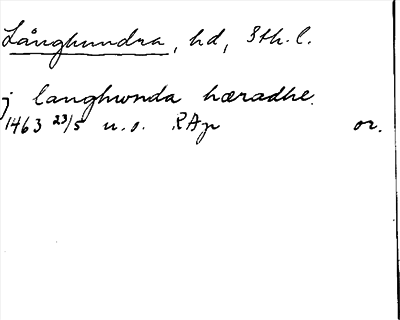 Långhundra, hd, Sth. l.
j langhwnda hæradhe.
1463 23/5 u.o. RAp or.